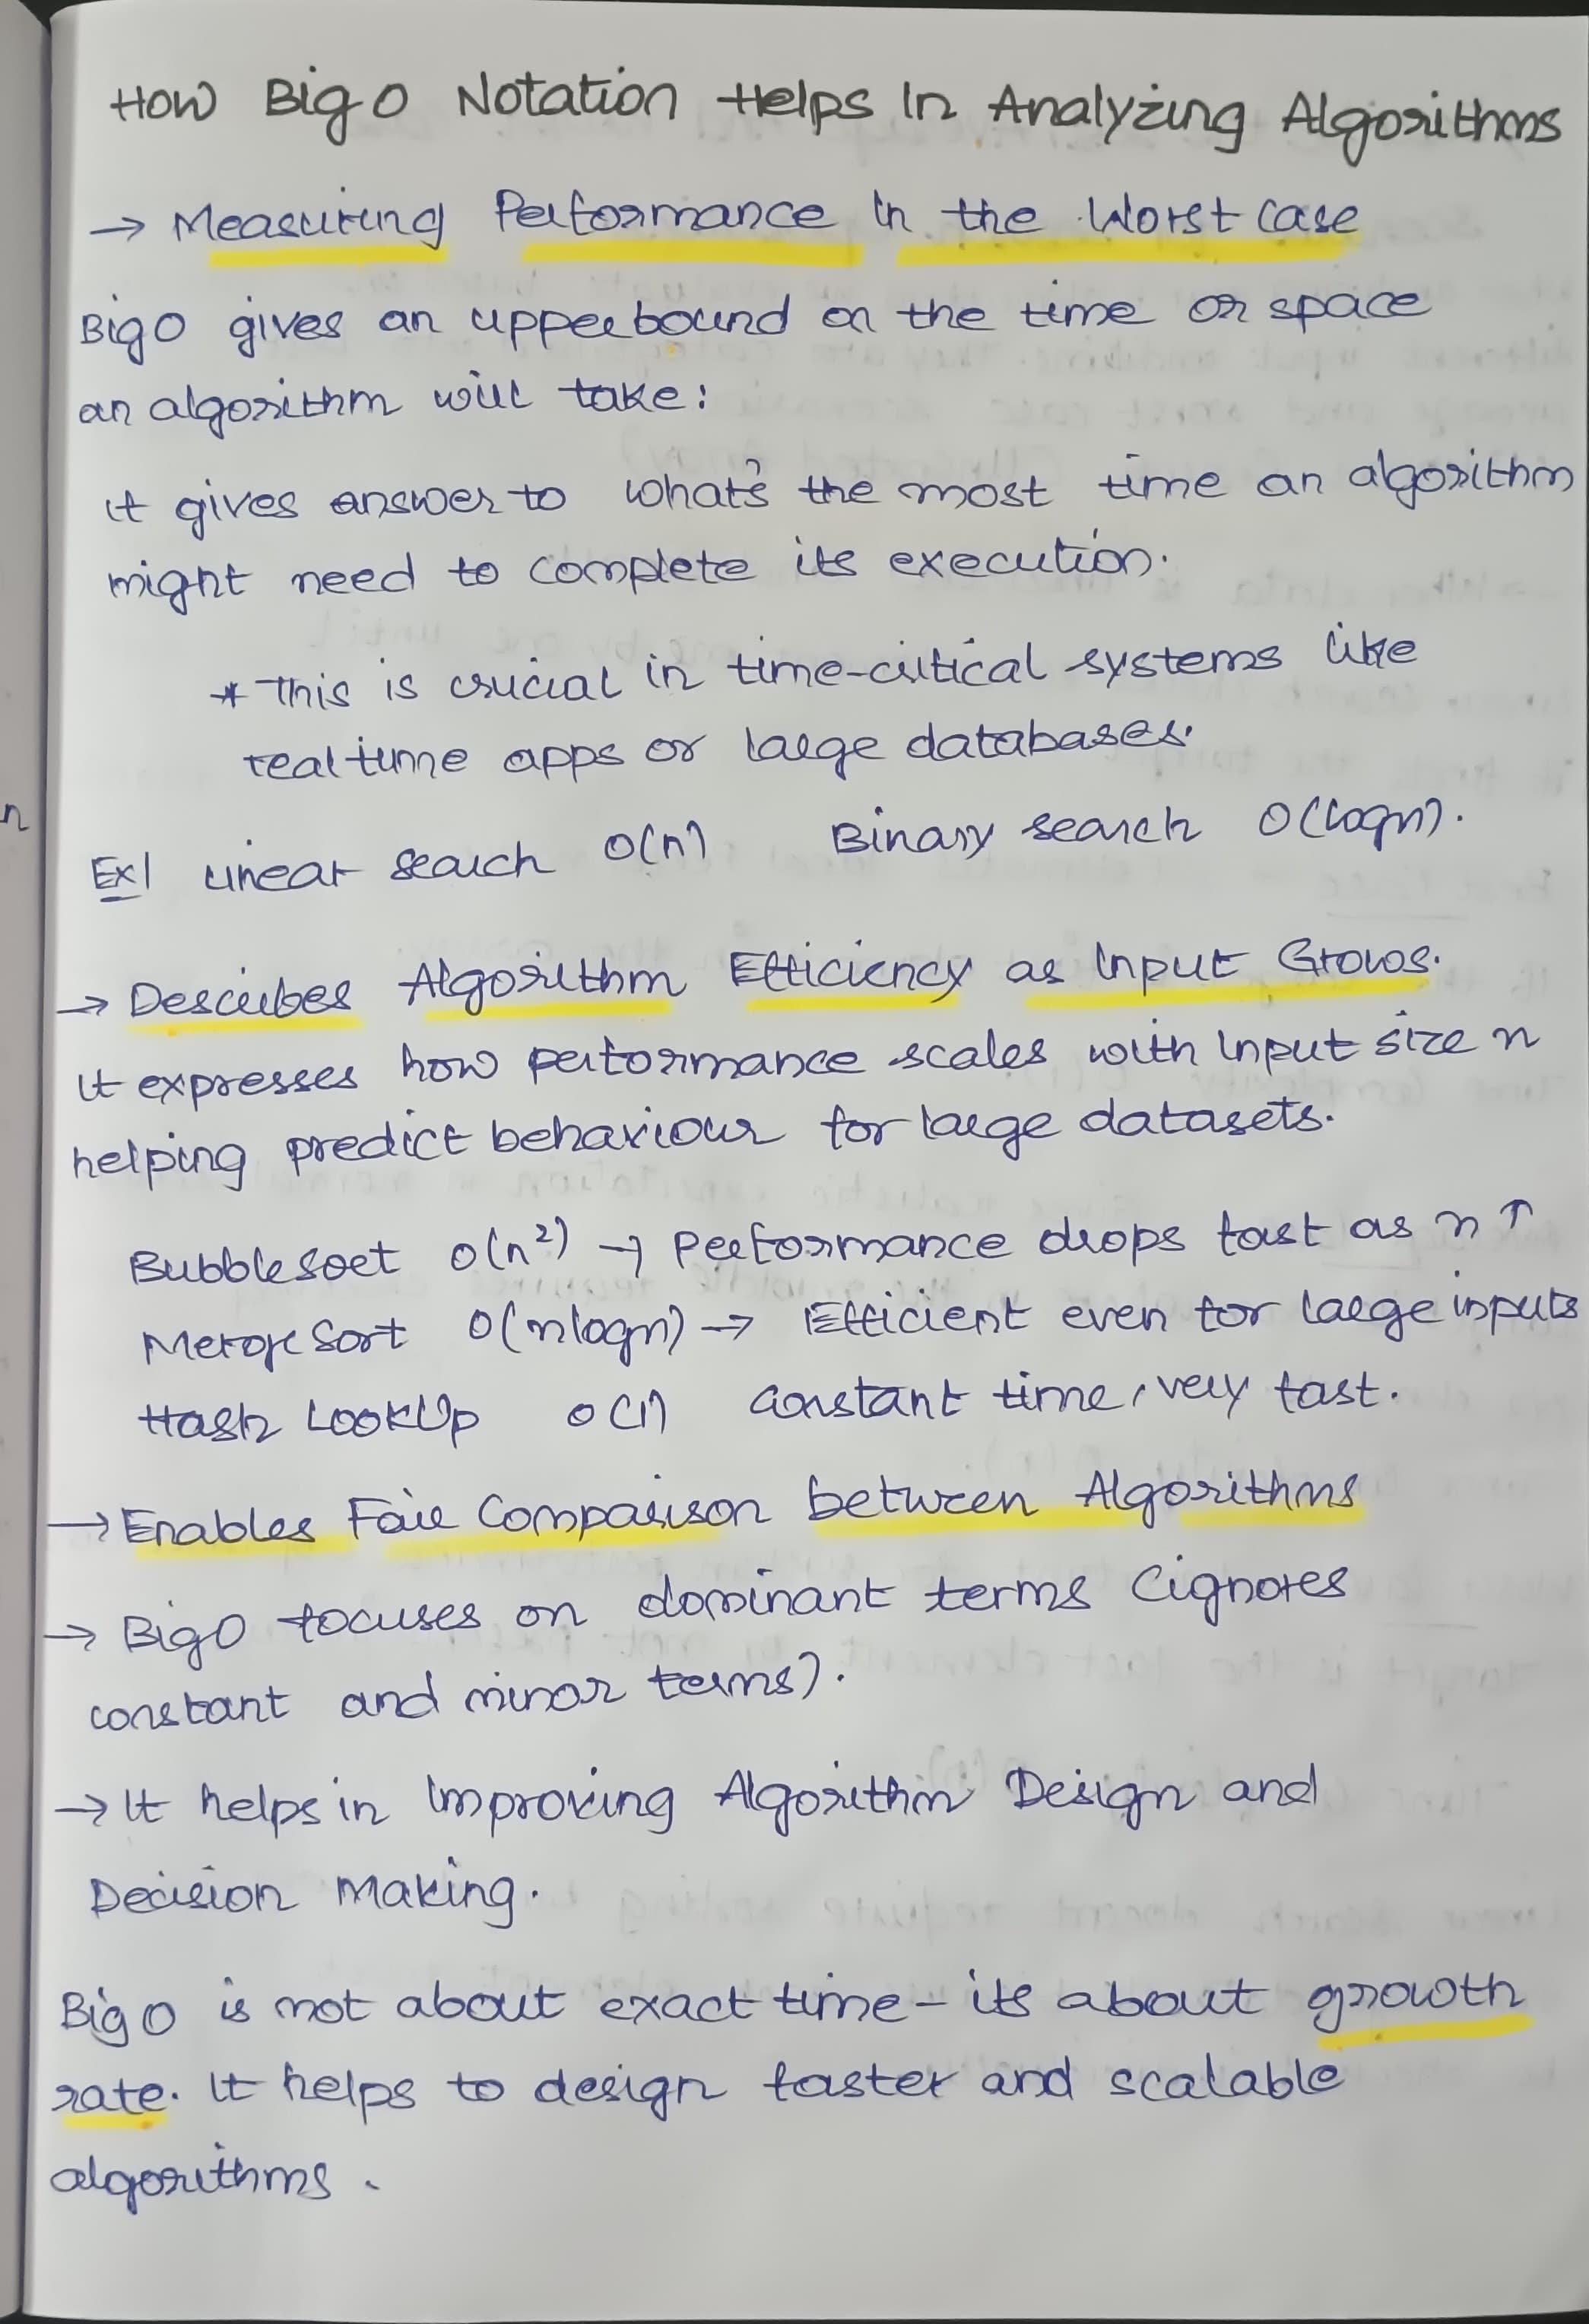 How Big O Notation Helps In Analyzing Algorithms
→ Measuring Performance in the Worst Case
Big O gives an upperbound on the time or space
an algorithm will take:
it gives answer to what's the most time an algorithm
might need to complete its execution.
* This is crucial in time-critical systems like
real time apps or large databases.
n
Ex/ Linear search O(n) Binary search O(logn).
→ Describes Algorithm Efficiency as Input Grows.
It expresses how performance scales with input size n
helping predict behaviour for large datasets.
Bubble sort O(n²) → Performance drops fast as n ↑
Merge Sort O(nlogn) → Efficient even for large inputs
Hash LookUp O(1) constant time, very fast.
→ Enables Fair Comparison between Algorithms
→ Big O focuses on dominant terms (ignores
constant and minor terms).
→ It helps in Improving Algorithm Design and
Decision Making.
Big O is not about exact time - its about growth
rate. It helps to design faster and scalable
algorithms.